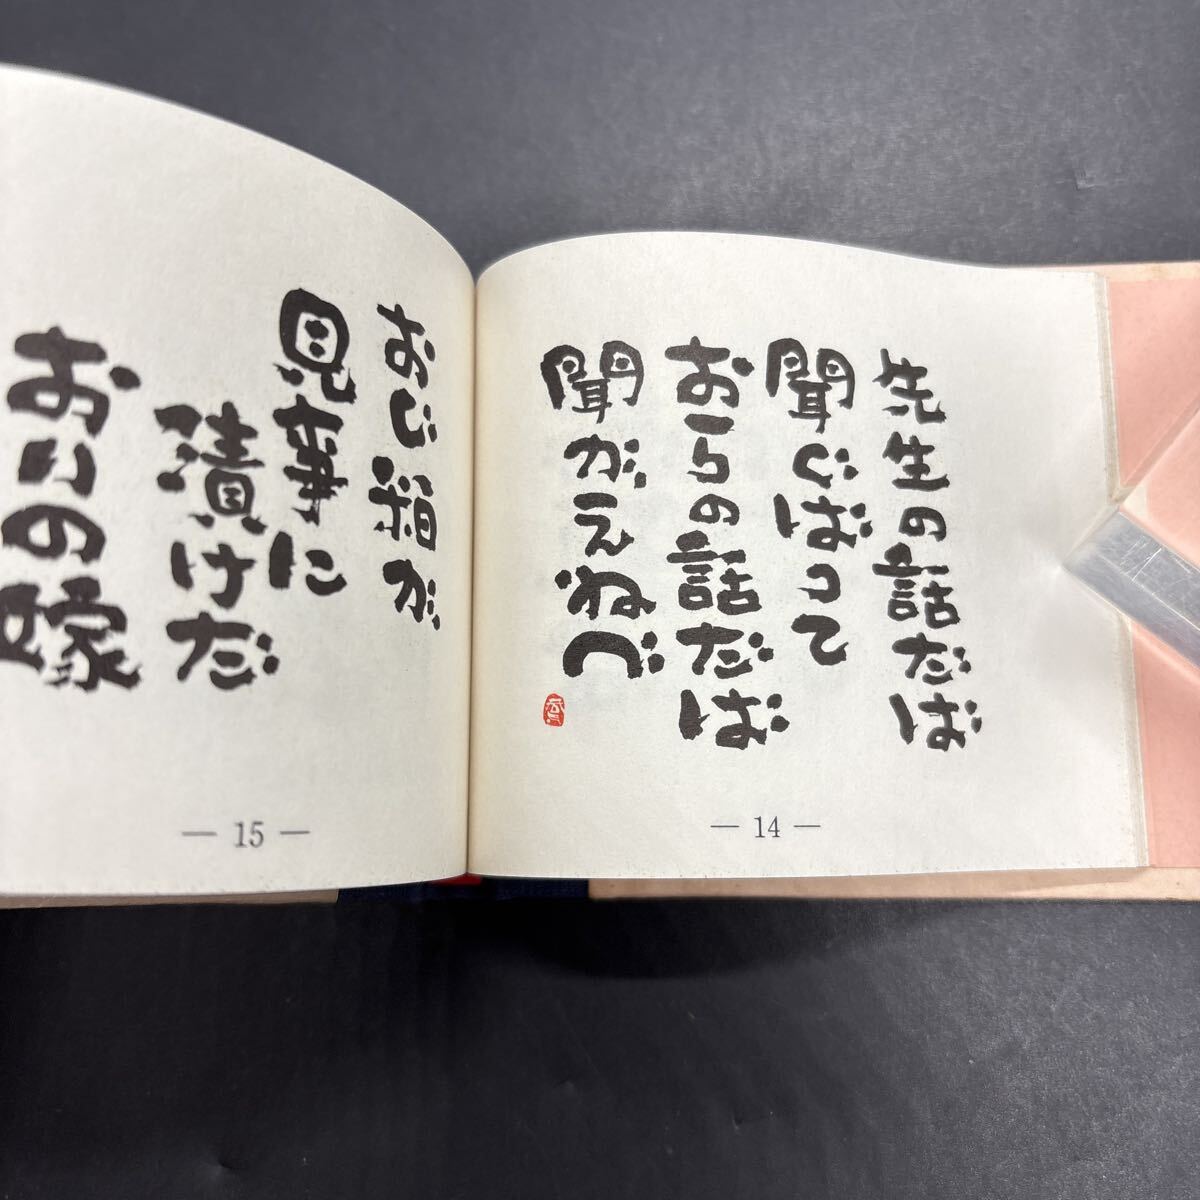 先生の話だば
聞ぐばって
おらの話だば
聞がえねづ
— 14 —
が
見事に
漬けだ
おりの嫁
— 15 —